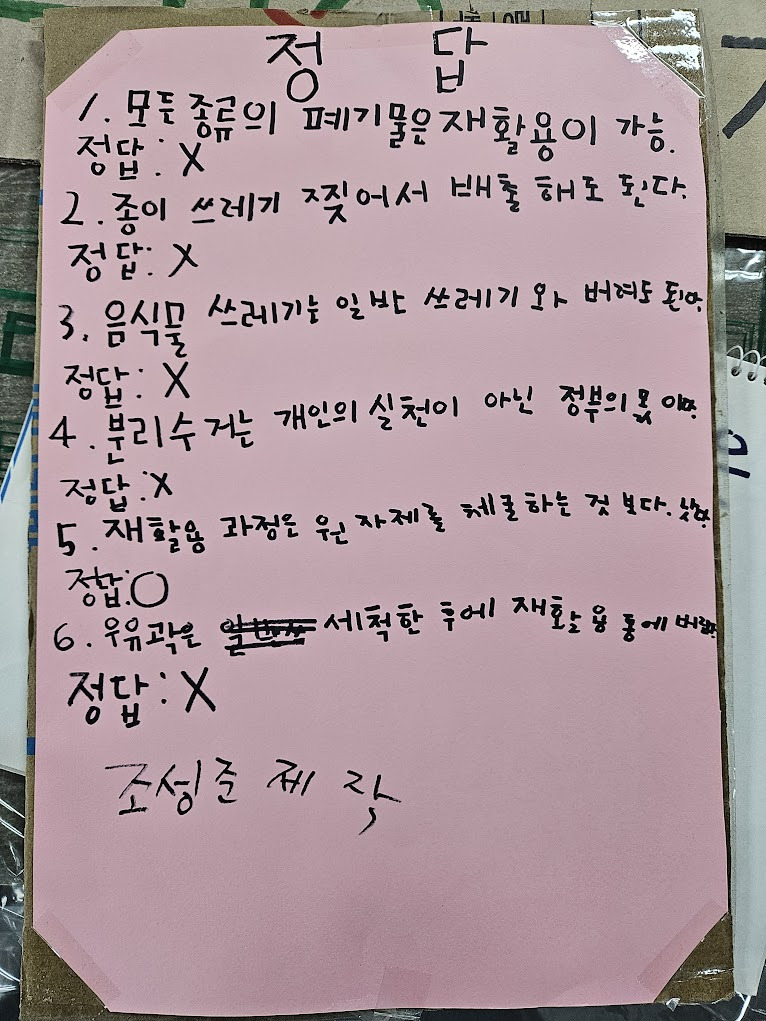 정 답
1. 모든 종류의 폐기물은 재활용이 가능.
정답: X
2. 종이 쓰레기 찢어서 배출 해도 된다.
정답: X
3. 음식물 쓰레기는 일반 쓰레기와 버려도 된다.
정답: X
4. 분리수거는 개인의 실천이 아닌 정부의 몫이다.
정답: X
5. 재활용 과정은 원자제를 체굴하는 것 보다. 낫다.
정답: O
6. 우유곽은 세척한 후에 재활용통에 버린다.
정답: X
조성준 제작